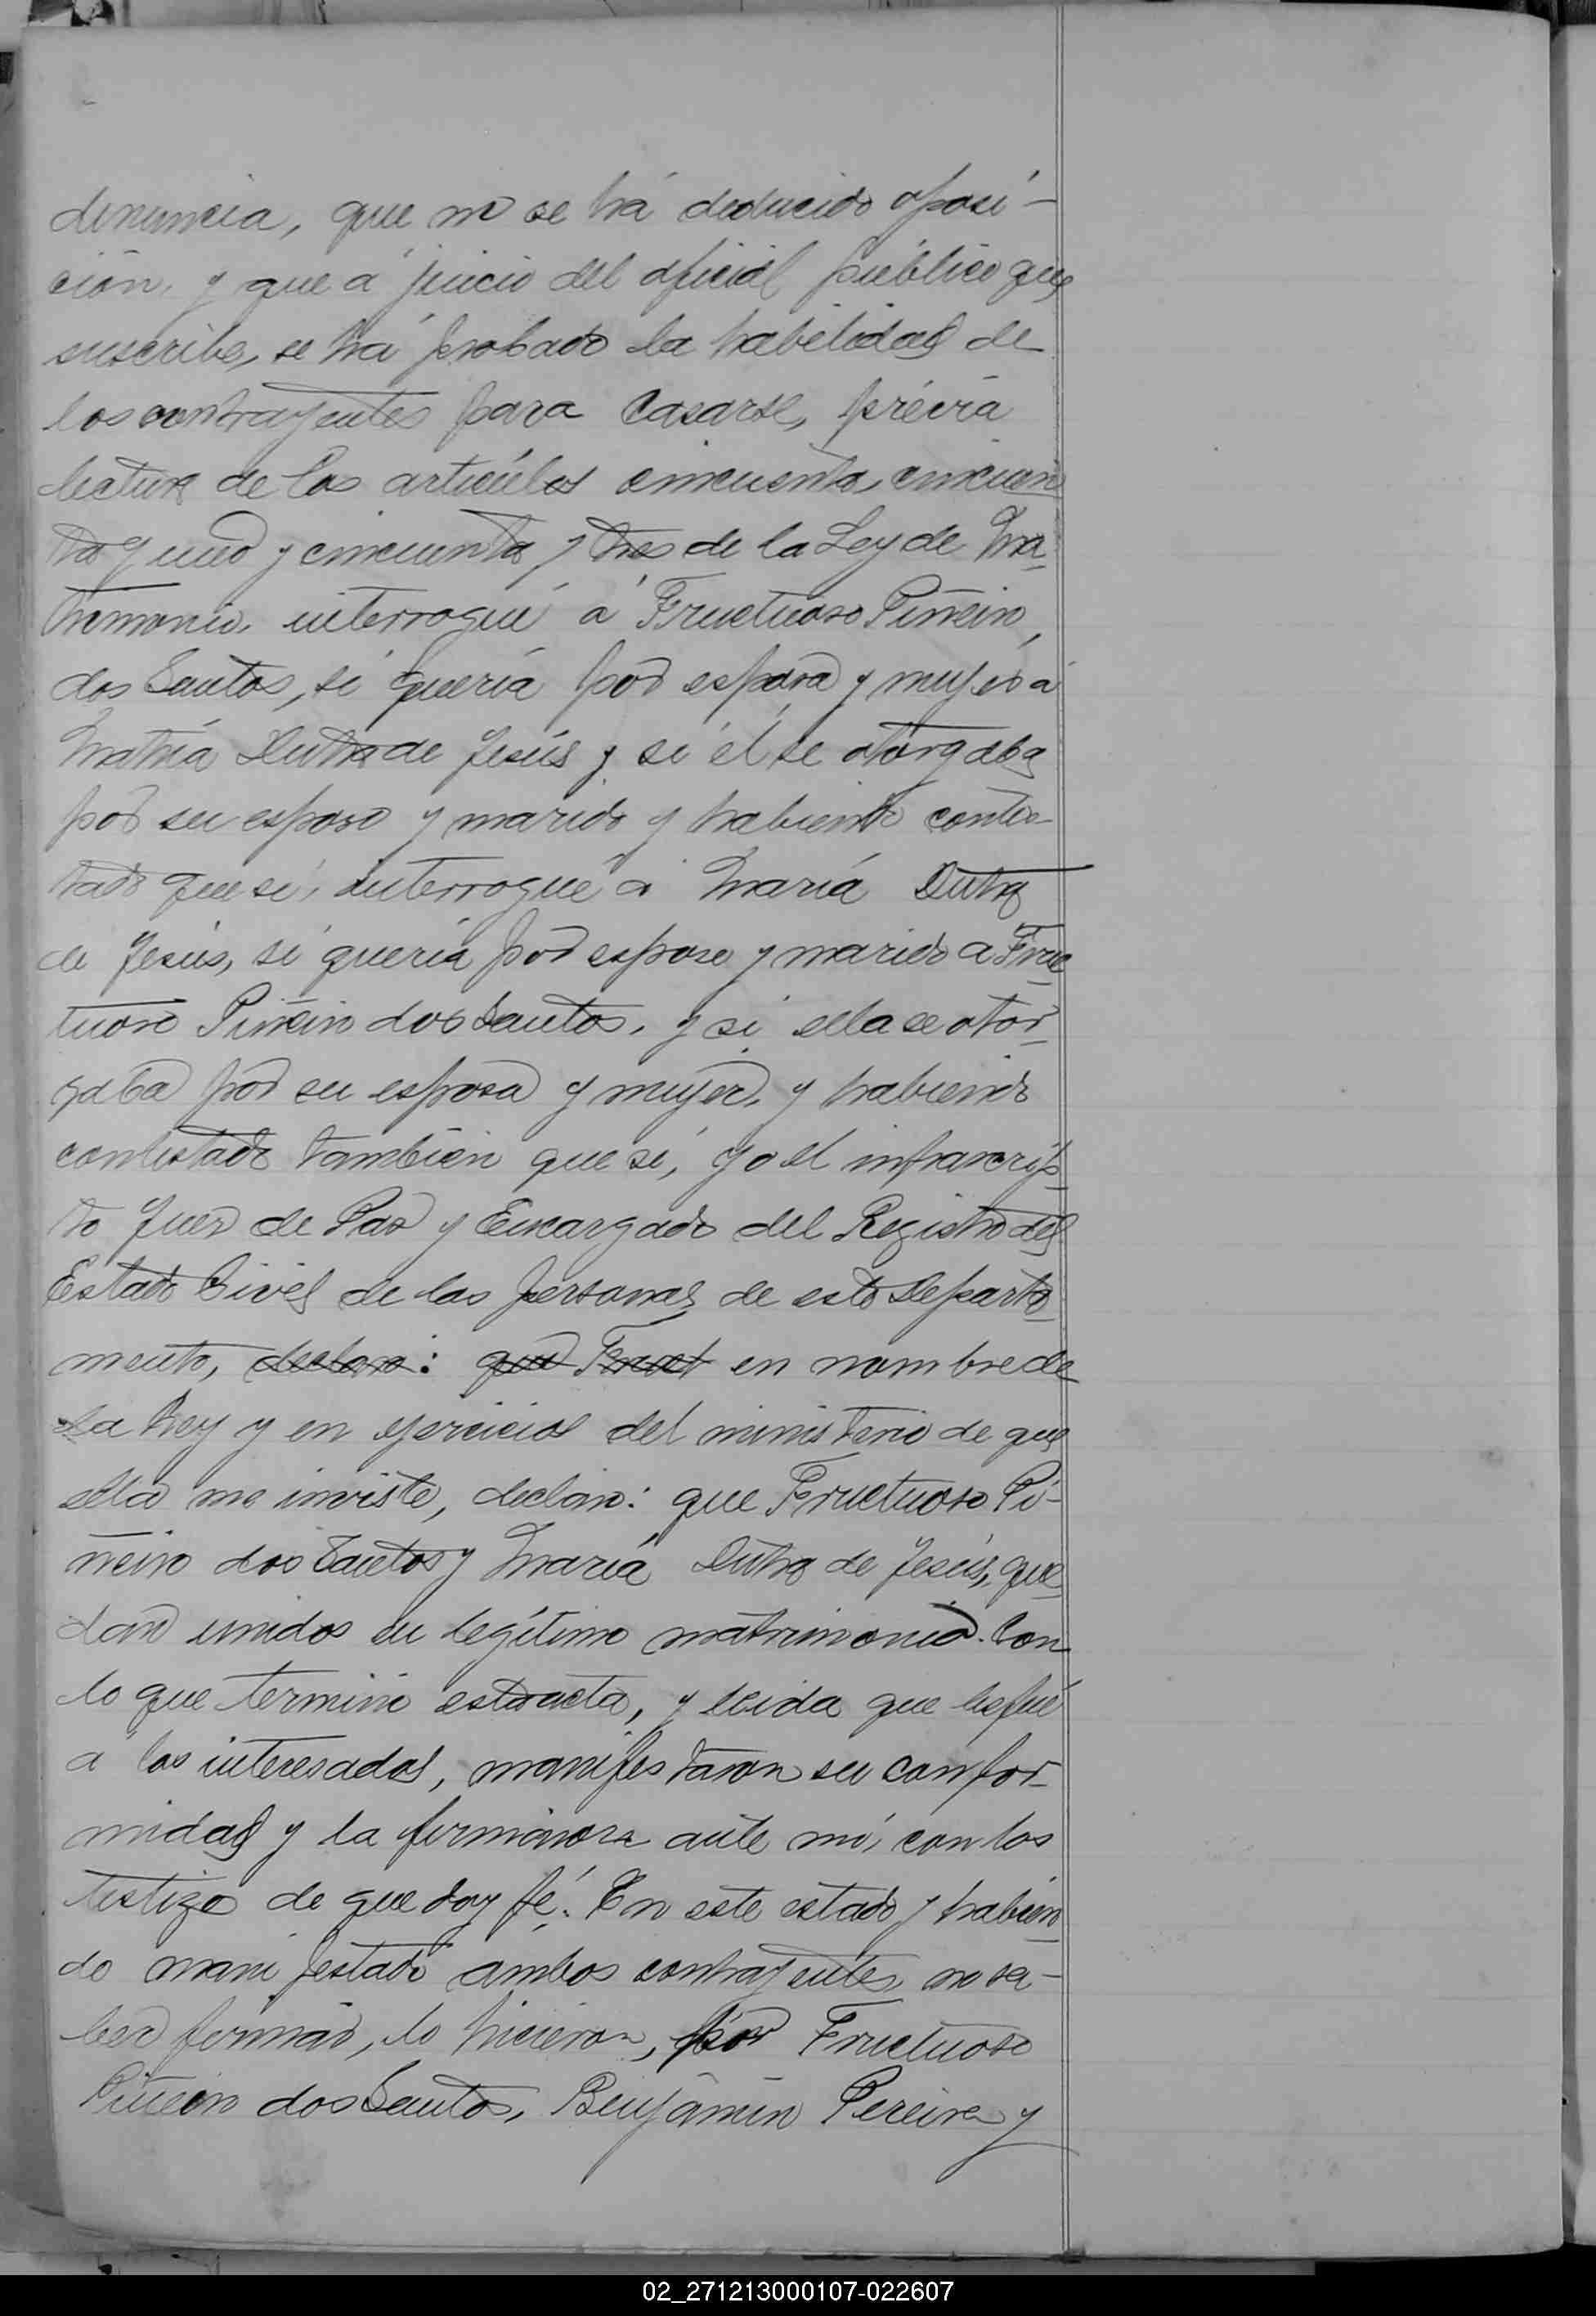 denuncia, que no se há deducido oposi-
ción, y que a juicio del oficial público que
suscribe, se há probado la habilidad de
los contrayentes para casarse, prévia
lectura de los articúlos cincuenta, cincuen
ta y uno y cincuenta y tres de la Ley de Ma_
trimonio, interrogué á Fructuoso Piñeiro
dos Santos, sí quería por esposa y mujer á
María Dutra de Jesús y si él se otorgaba
por su esposo y marido y habiendo contes-
tado que sí, interrogué a María Dutra
de Jesús, sí quería por esposo y marido a Fruc
tuoso Piñeiro dos Santos, y si ella se otor_
gaba por su esposa y mujer, y habiendo
contestado también que sí, yo el infrascrip_
to Juez de Paz y Encargado del Registro del
Estado Civil de las personas de este Departa_
mento, declaro: que Fruct en nombre de
la Ley y en ejercicio del ministerio de que
ella me inviste, declaro: que Fructuoso Pi-
ñeiro dos Santos y María Dutra de Jesús, que_
dan unidos en legítimo matrimonio. Con
lo que terminó esta acta, y leida que les fué
a los interesados, manifestaron su confor_
midad y la firmaron ante mí, con los
testigo de que doy fé. En este estado y habien_
do manifestado ambos contrayentes, no sa-
ber firmar, lo hicieron, por Fructuoso
Piñeiro dos Santos, Benjámin Pereira y
02_271213000107-022607